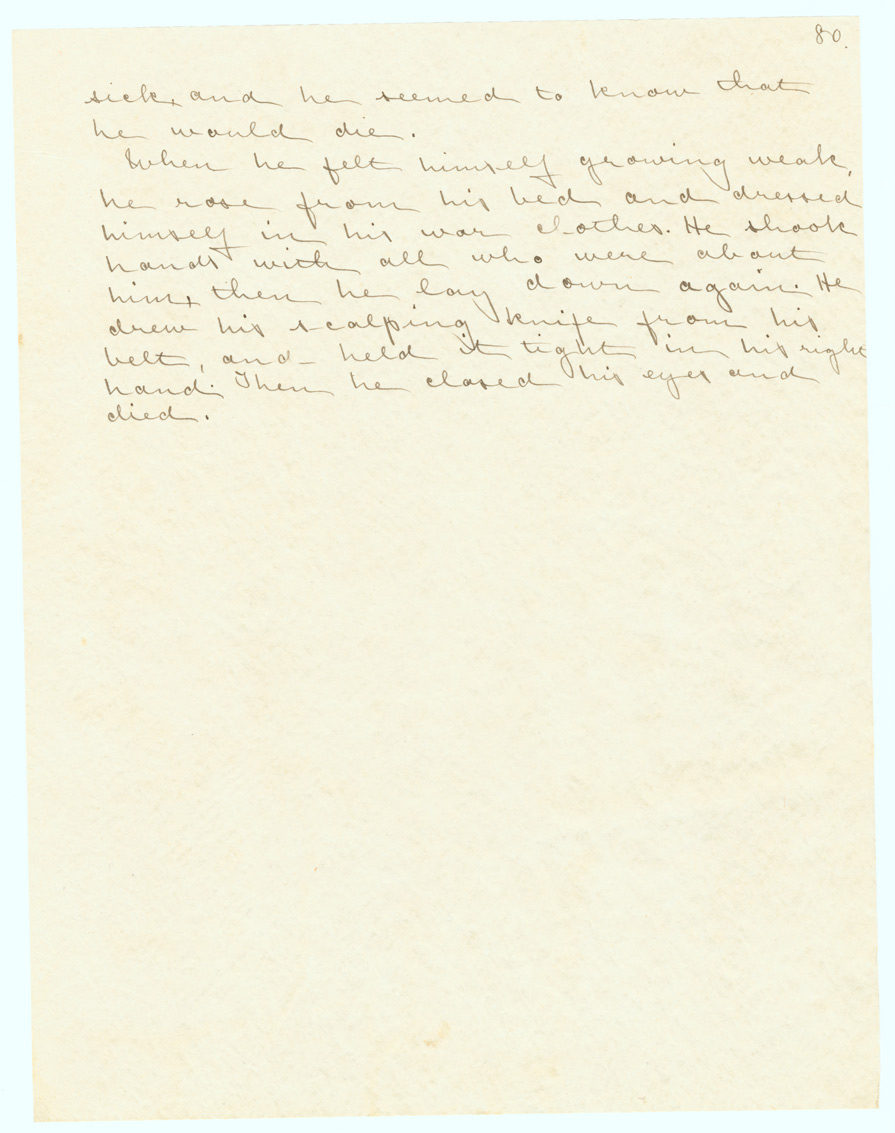 80.
sick, and he seemed to know that
he would die.
When he felt himself growing weak,
he rose from his bed and dressed
himself in his war clothes. He shook
hands with all who were about
him, then he lay down again. He
drew his scalping knife from his
belt, and held it tight in his right
hand. Then he closed his eyes and
died.